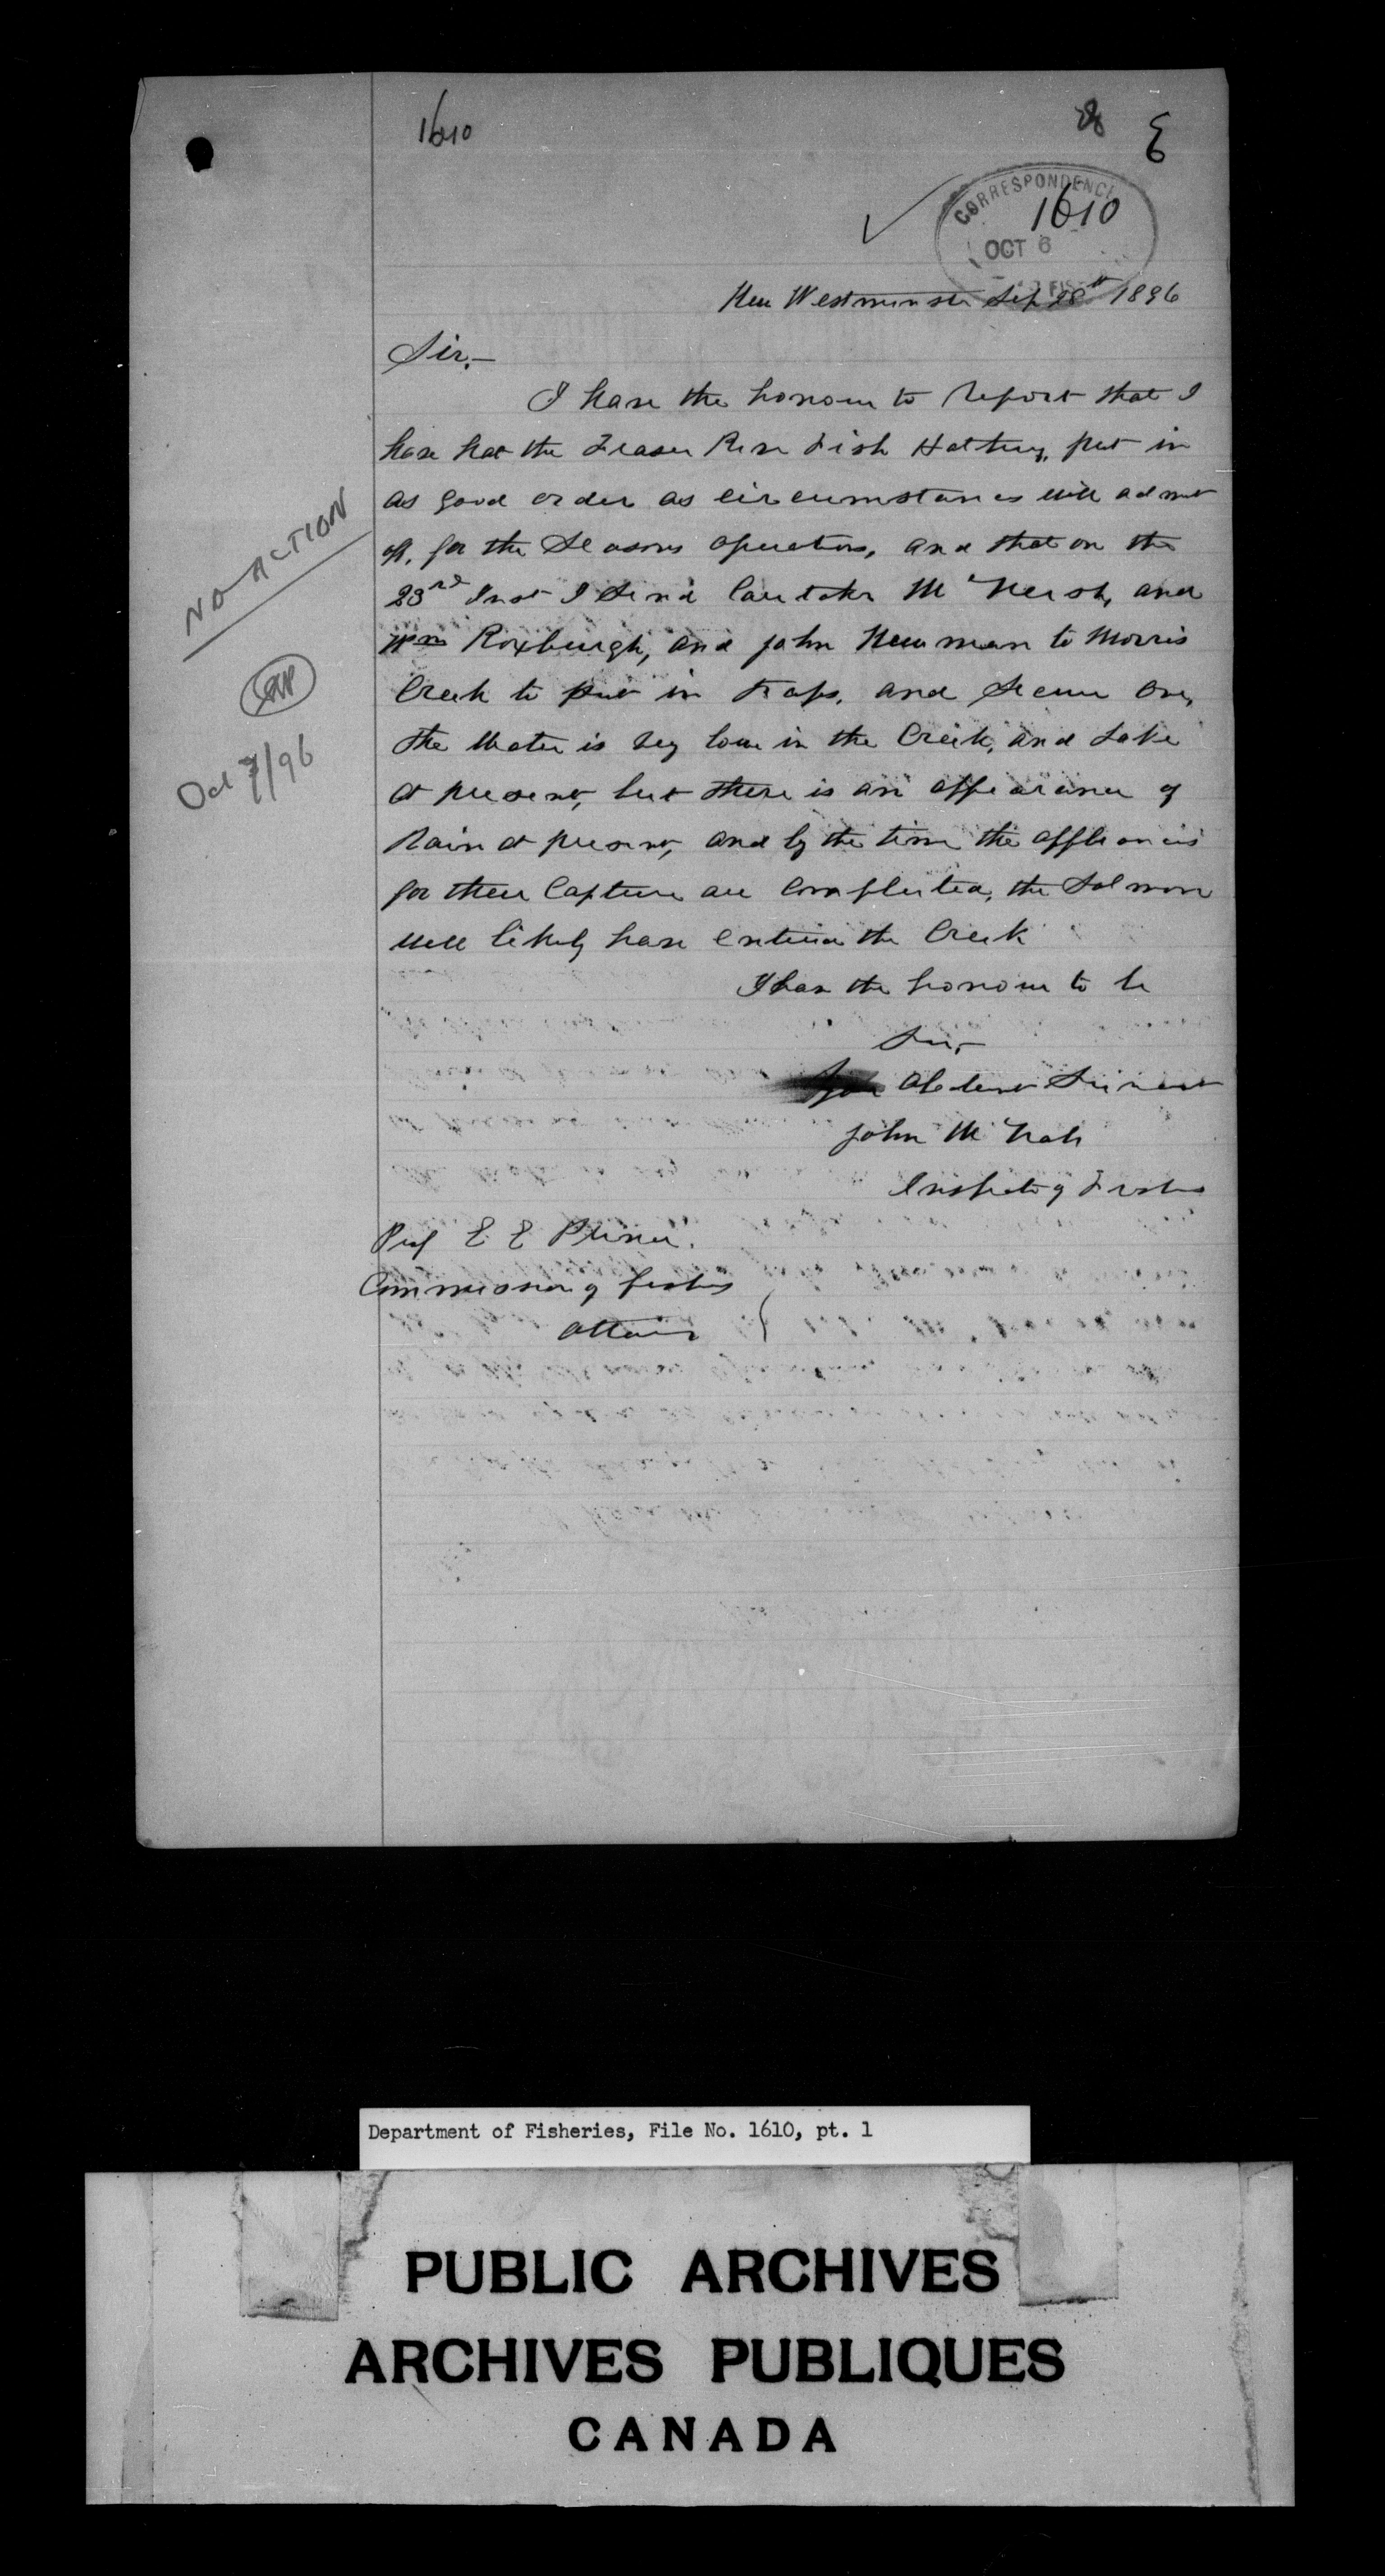 1610
1610
CORRESPONDENCE
OCT 6
FIS
New Westminster Sep 28th 1896
Sir,—
I have the honour to report that I
have had the Fraser River Fish Hatchery, put in
as good order as circumstances will admit
off, for the Seasons operations, and that on the
23rd Inst I Send Caretaker McNeish, and
Wm Roxburgh, and John Newman to Morris
Creek to put in traps, and secure ova,
the Water is very low in the Creek, and Lake
at present, but there is an appearance of
Rain at present, and by the time the appliances
for their Capture are Completed, the Salmon
will likely have Entered the Creek
I have the honour to be
Sir,
Your Obedient Servant
John McNab
Inspector of Fisheries
Prof E E Prince.
Commissioner of fisheries
Ottawa
NO ACTION
Oct 7/96
Department of Fisheries, File No. 1610, pt. 1
PUBLIC ARCHIVES
ARCHIVES PUBLIQUES
CANADA